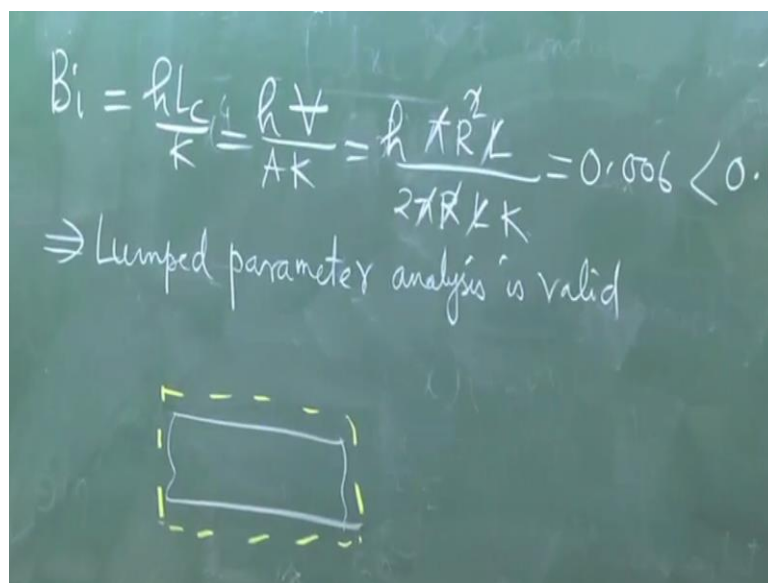 Bi = hLc/K = hV/AK = h πR²L/2πRLK = 0.006 < 0.
⇒ Lumped parameter analysis is valid